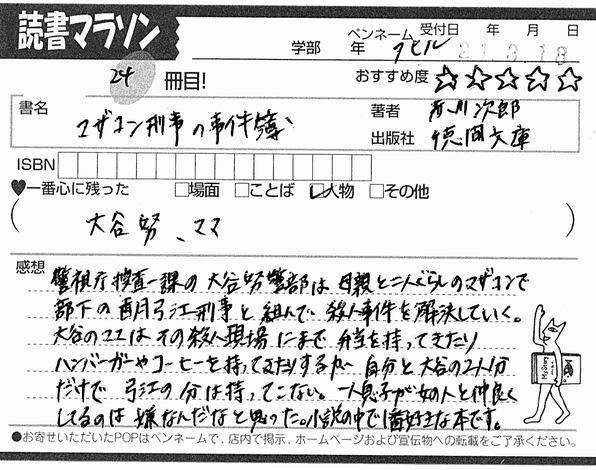 読書マラソン
学部 年 ペンネーム アビル 受付日 年 月 日
21.3.18
24 冊目!
おすすめ度 ☆☆☆☆☆
書名 マザコン刑事の事件簿
著者 赤川次郎
出版社 徳間文庫
ISBN
♥一番心に残った □場面 □ことば ☑人物 □その他
( 大谷努、ママ )
感想
警視庁捜査一課の大谷努警部は母親と二人ぐらしのマザコンで
部下の香月弓江刑事と組んで殺人事件を解決していく。
大谷のママはその殺人現場にまで弁当を持ってきたり
ハンバーガーやコーヒーを持ってきたりするが自分と大谷の2人分
だけで弓江の分は持ってこない。一人息子が女の人と仲良く
してるのは嫌なんだなと思った。小説の中で1番好きな本です。
●お寄せいただいたPOPはペンネームで、店内で掲示、ホームページおよび宣伝物への転載をご了承ください。